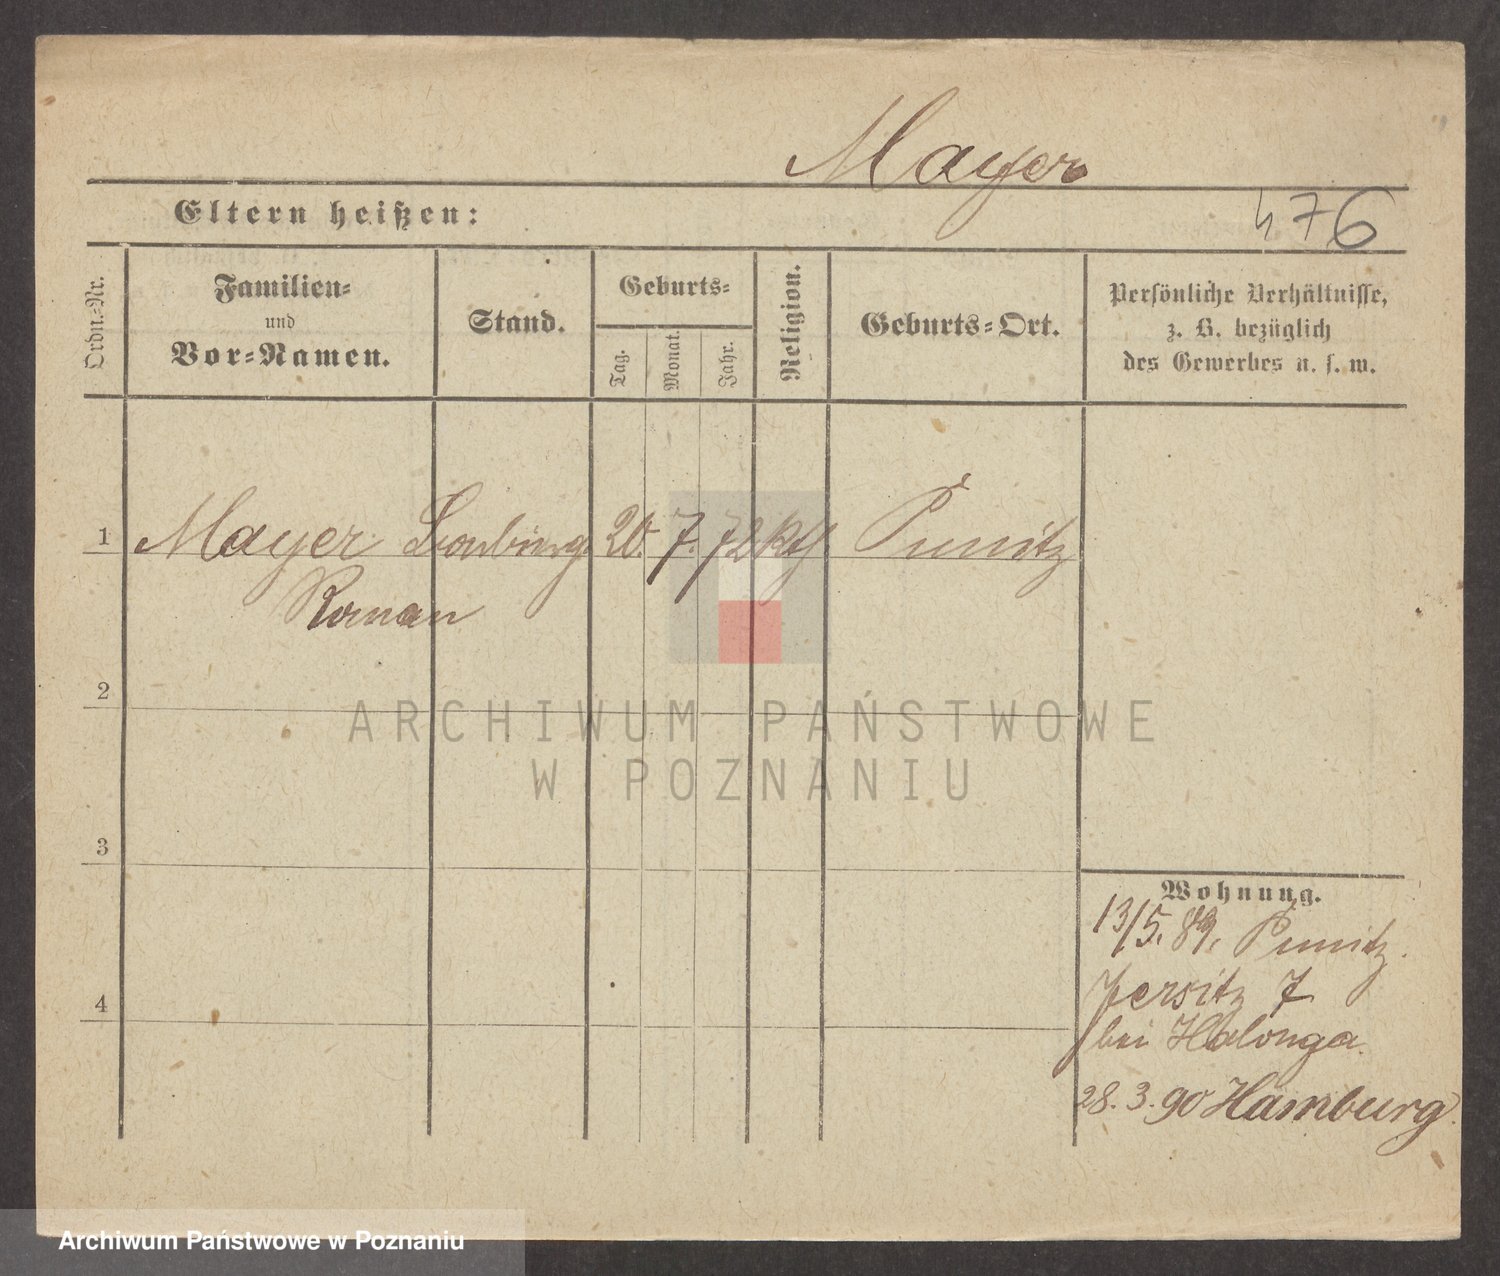 Mayer
476
Eltern heißen:
Ordn.-Nr.
Familien-
und
Vor-Namen.
Stand.
Geburts-
Tag.
Monat.
Jahr.
Religion.
Geburts-Ort.
Persönliche Verhältnisse,
z. B. bezüglich
des Gewerbes u. s. w.
1 Mayer 20. 7. 72 kth Punitz
Roman
2
3
4
Wohnung.
13/5. 89. Punitz.
Jersitz 7
bei
28. 3. 90 Hamburg.
ARCHIWUM PAŃSTWOWE
W POZNANIU
Archiwum Państwowe w Poznaniu